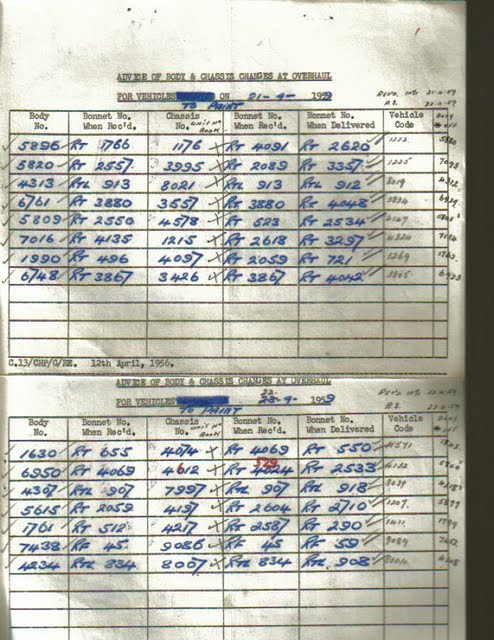 ADVICE OF BODY & CHASSIS CHANGES AT OVERHAUL
FOR VEHICLES ON 21-9- 1959
TO PAINT
Body No. Bonnet No. When Rec'd. Chassis No. Unit No. Book Bonnet No. When Rec'd. Bonnet No. When Delivered Vehicle Code Body
5896 RT 1766 1176 RT 4091 RT 2620 1222
5820 RT 2557 3995 RT 2089 RT 3357 1225
4313 RTL 913 8021 RTL 913 RTL 912 8019
6761 RT 3880 3557 RT 3880 RT 4048
5809 RT 2550 4578 RT 523 RT 2534
7016 RT 4135 1215 RT 2618 RT 3297 4324
1990 RT 496 4097 RT 2059 RT 721 1269
6748 RT 3867 3426 RT 3867 RT 4042 3805
C.13/CHP/G/RE. 12th April, 1956.
ADVICE OF BODY & CHASSIS CHANGES AT OVERHAUL
22.
FOR VEHICLES 23-9- 1959
TO PAINT
R.S.
Body No. Bonnet No. When Rec'd. Chassis No. Unit No. Book Bonnet No. When Rec'd. Bonnet No. When Delivered Vehicle Code
1630 RT 655 4074 RT 4069 RT 550 4571
6950 RT 4069 4612 RT 529 RT 2533 4122
4307 RTL 907 7997 RTL 907 RTL 918 8029
5615 RT 2059 4197 RT 2604 RT 2710 1207
1761 RT 512 4217 RT 2587 RT 290 1411
7438 RF 45 9086 RF 45 RF 59 9089
4234 RTL 834 8007 RTL 834 RTL 908 8004